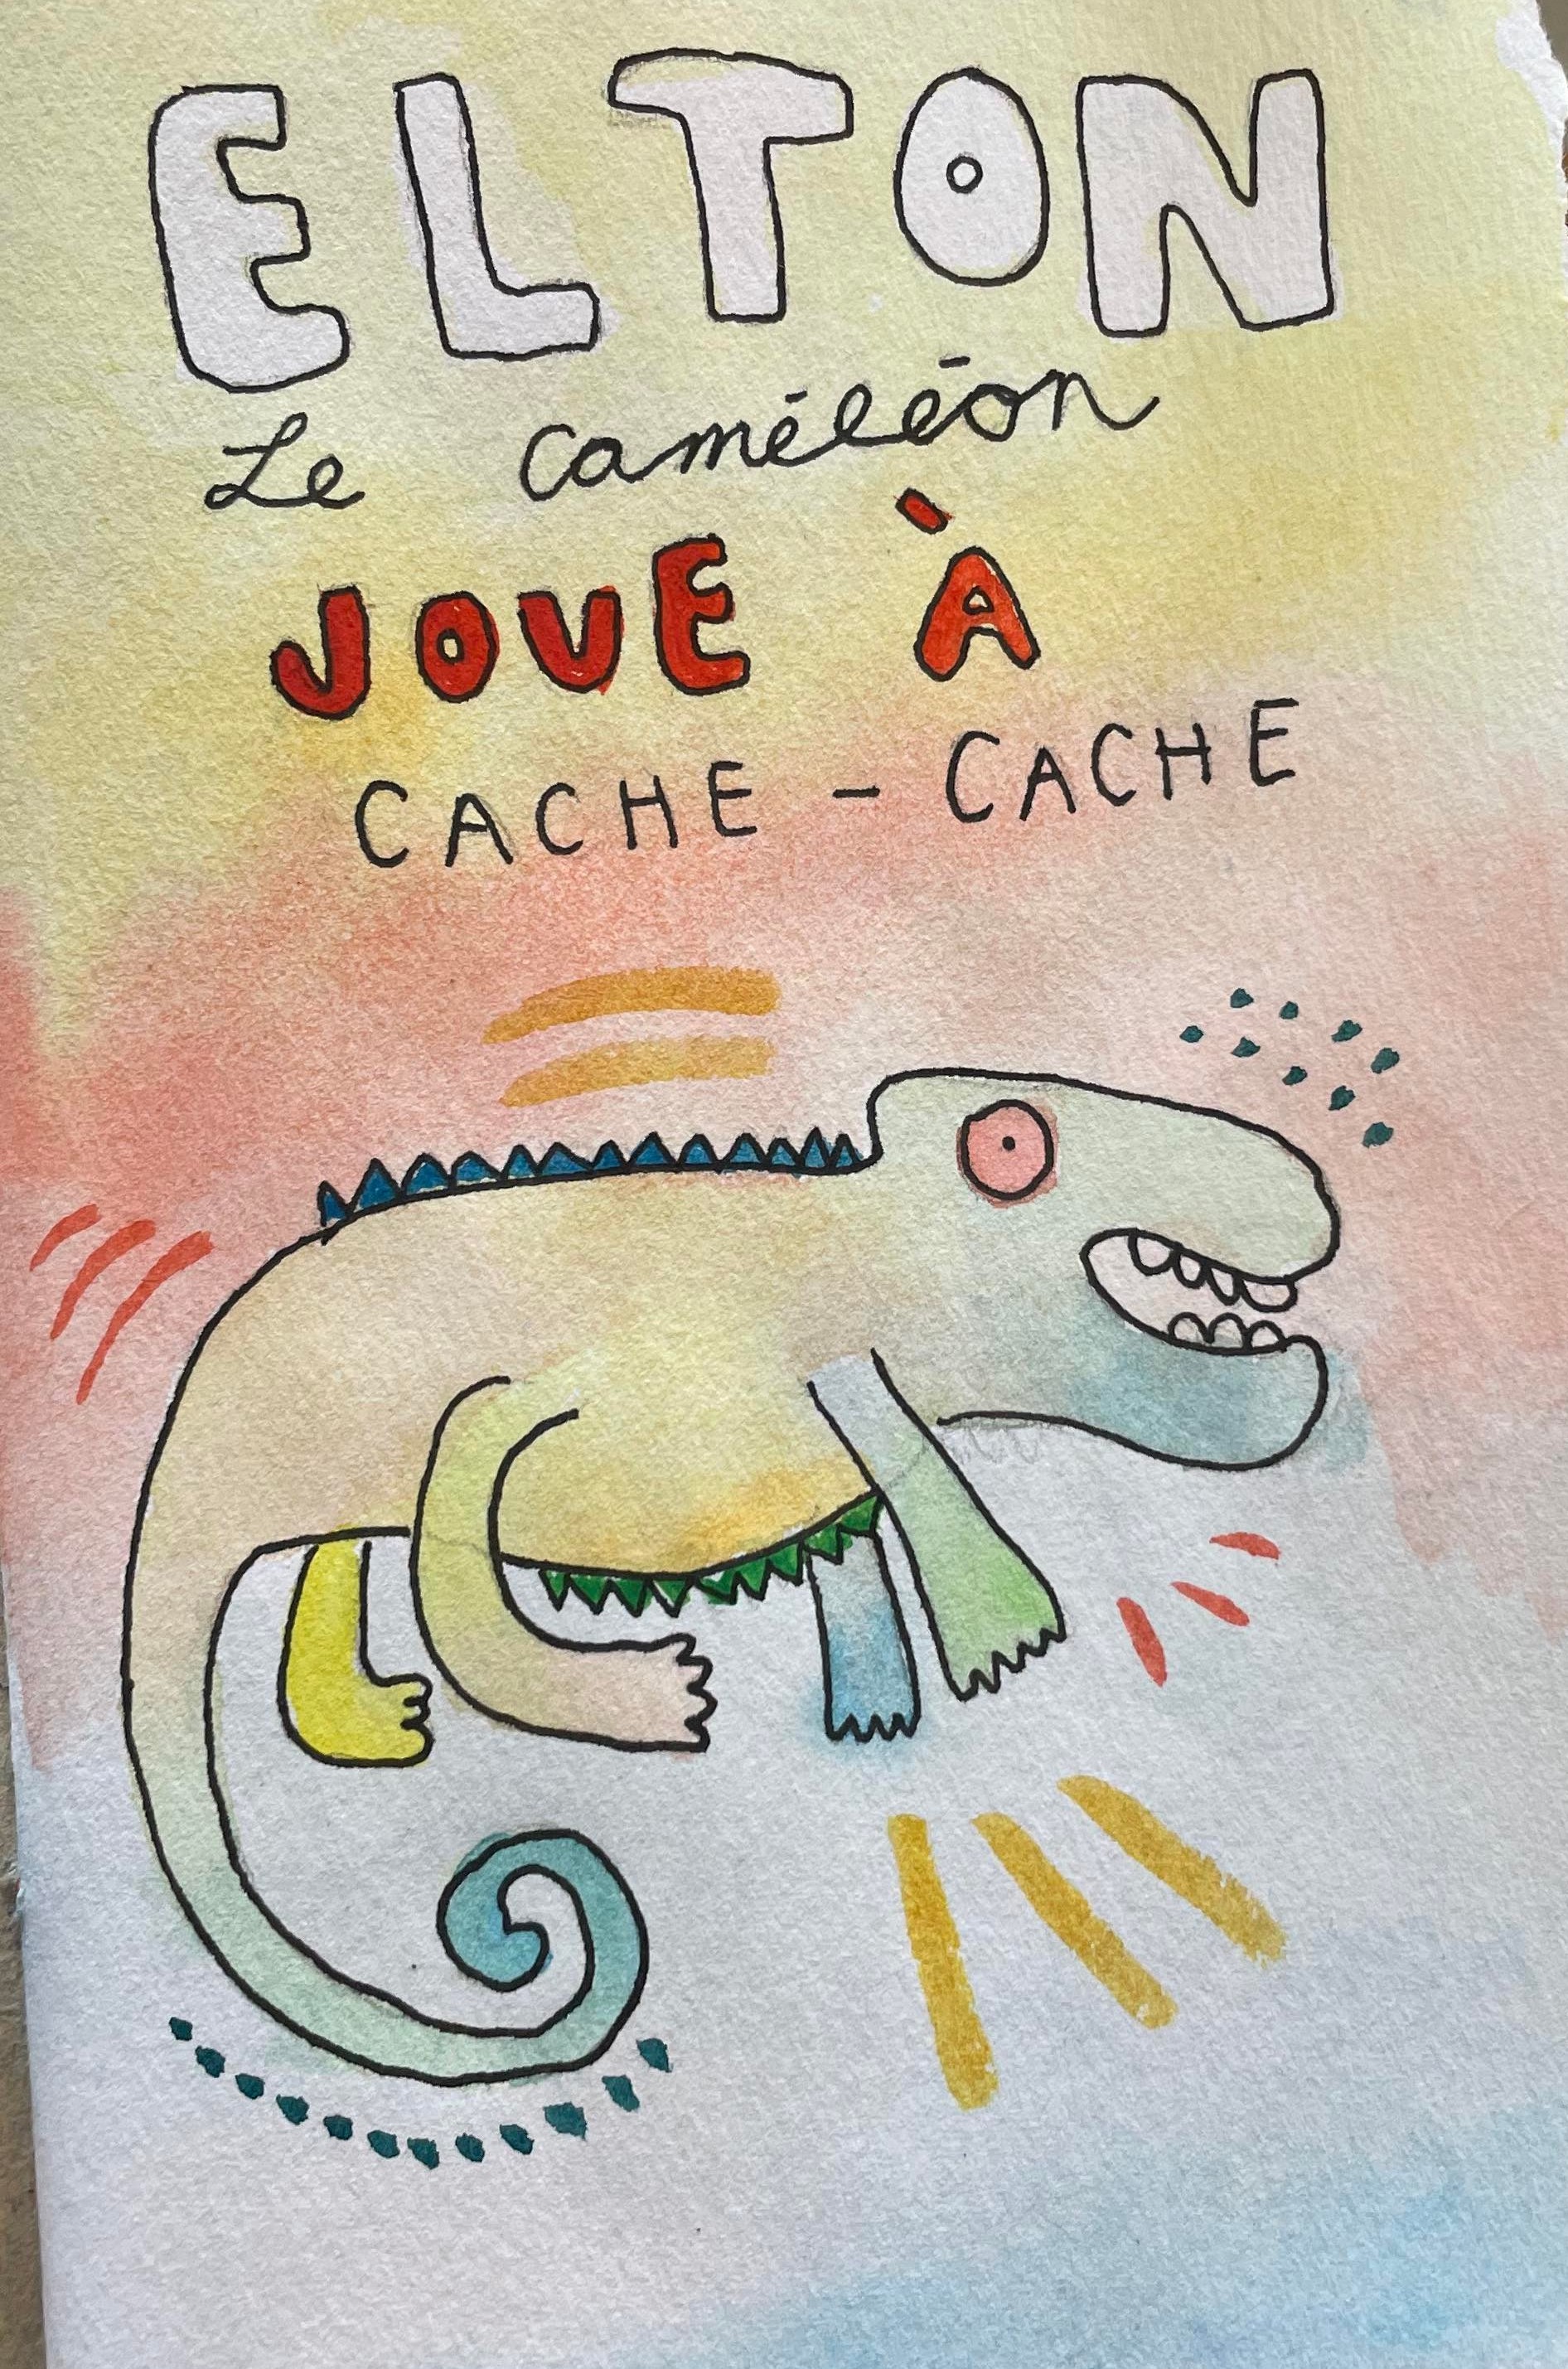 ELTON
Le caméléon
JOUE À
CACHE - CACHE